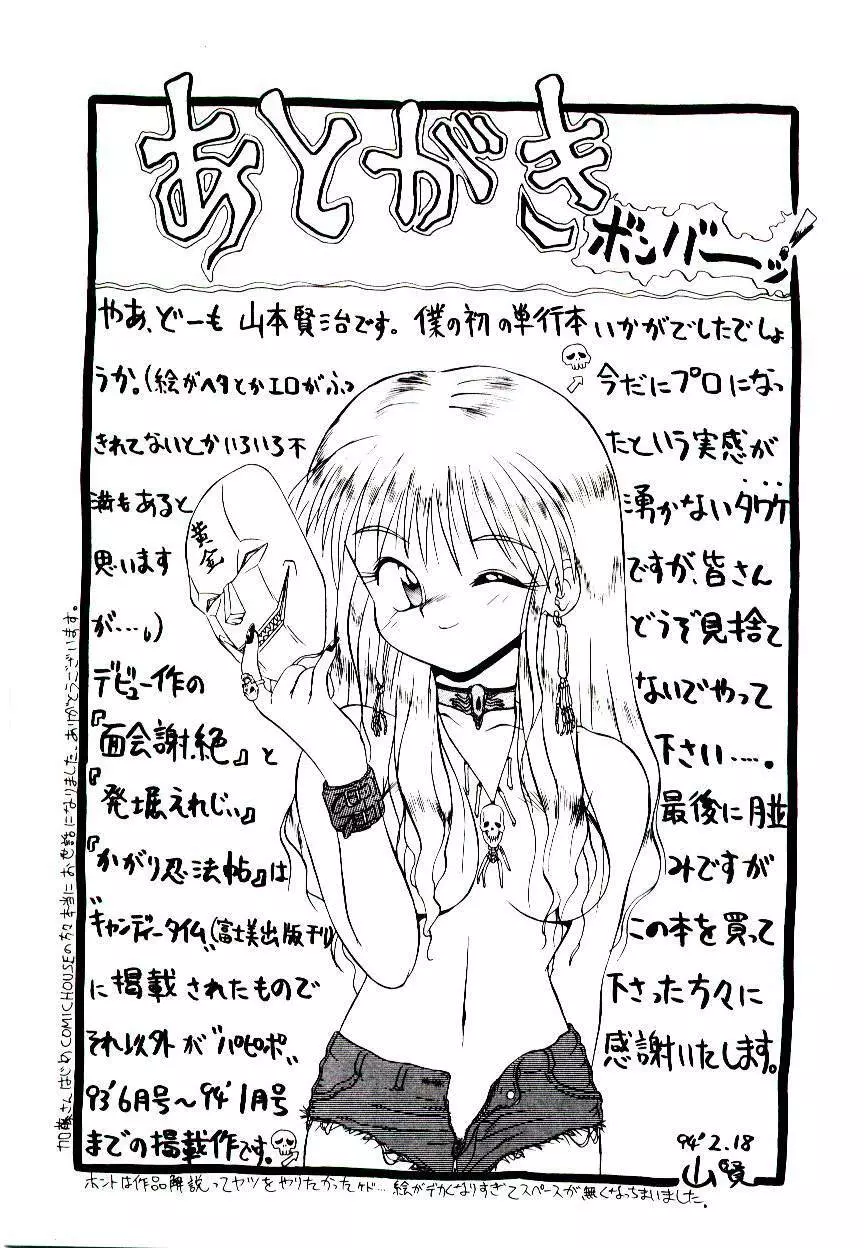 あとがき
ボンバーッ!
やあ、どーも 山本賢治です。僕の初の単行本いかがでしたでしょ
うか。(絵がヘタとかエロがふっ
きれてないとかいろいろ不
満もあると
思います
が…。)
デビュー作の
『面会謝絶』と
『発堀えれじぃ』
『かがり忍法帖』は
"キャンディータイム"(富士美出版刊)
に掲載されたもので
それ以外が"パピポ"
93'6月号〜94'1月号
までの掲載作です。
今だにプロになっ
たという実感が
湧かないタワケ
ですが、皆さん
どうぞ見捨て
ないでやって
下さい……。
最後に月並
みですが
この本を買って
下さった方々に
感謝いたします。
94'2.18
山賢
黄金
加藤さんはじめCOMIC HOUSEの方々本当にお世話になりました、ありがとうございます。
ホントは作品解説ってヤツをやりたかったケド…絵がデカくなりすぎてスペースが無くなっちまいました。